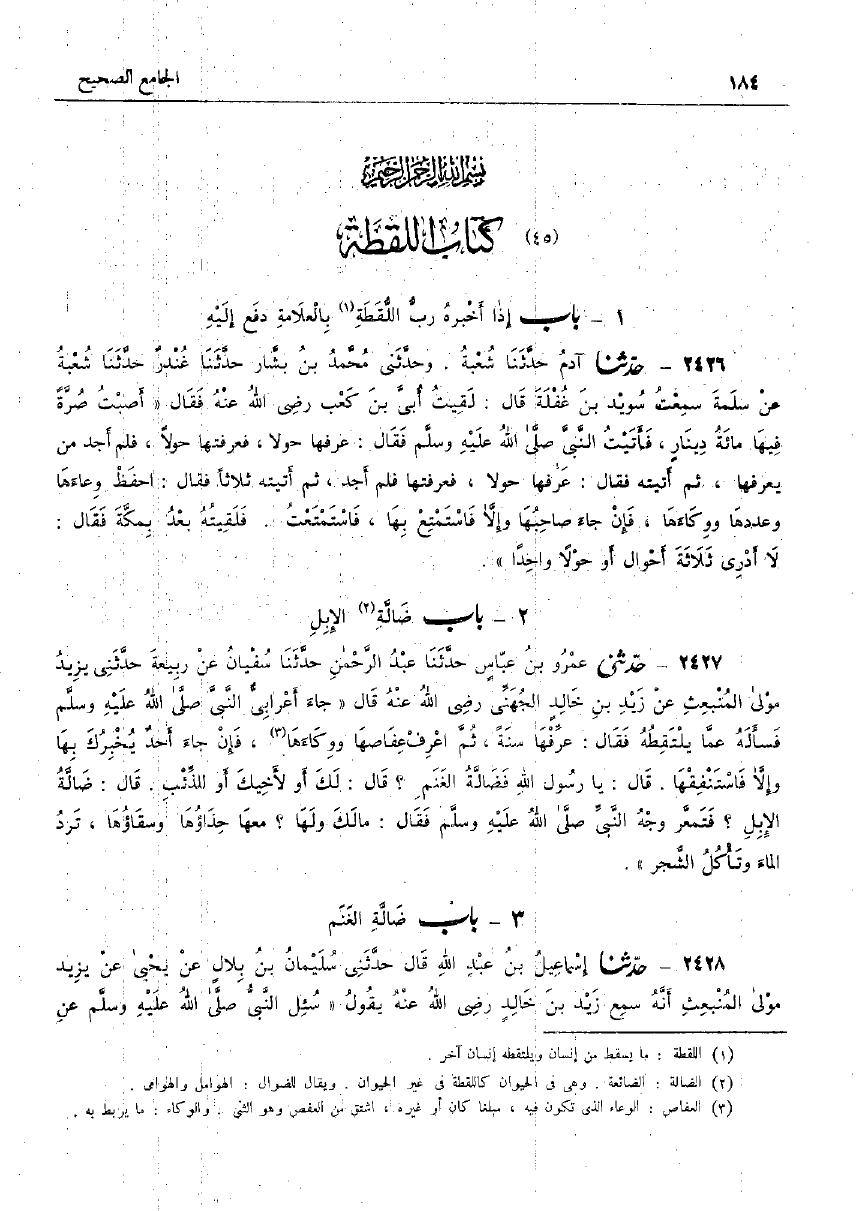 ١٨٤ الجامع الصحيح
بسم الله الرحمن الرحيم
(٤٥) كتاب اللقطة
١ – باب إذا أخبره ربُّ اللُّقَطَةِ(١) بِالْعلَامةِ دفَع إلَيْهِ
٢٤٢٦ – حدّثنا آدمُ حدَّثَنَا شُعْبةُ . وحدَّثنى مُحَّمدُ بنُ بشَّار حدَّثَنَا غُنْدرٌ حدَّثَنَا شُعْبةُ
عنْ سلَمةَ سمِعْتُ سُويْد بنَ غُفْلَةَ قَال : لَقِيتُ أُبىَّ بنَ كَعْب رضِى اللهُ عنْهُ فَقَال « أَصبْتُ صُرَّةً
فِيهَا مائَةُ دِينَارٍ ، فَأَتَيْتُ النَّبىَّ صلَّى اللهُ علَيْهِ وسلَّم فَقَال : عرفها حولا ، فعرفتها حولاً ، فلم أجد من
يعرفها ، ثم أتيته فقال : عَرِّفها حولا ، فعرفتها فلم أجد ، ثم أتيته ثلاثاً فقال : احفَظْ وِعاءَهَا
وعددهَا ووِكَاءَهَا ، فَإِنْ جاءَ صاحِبُهَا وإلَّا فَاسْتَمْتِعْ بِهَا ، فَاسْتَمْتَعْتُ . فَلَقِيتُهُ بعْدُ بِمكَّةَ فَقَال :
لَا أَدْرِى ثَلَاثَةَ أَحْوال أَو حوْلًا واحِدًا » .
٢ – باب ضَالَّةِ(٢) الإِبِلِ
٢٤٢٧ – حدّثنى عمْرُو بنُ عبَّاسٍ حدَّثَنَا عبْدُ الرَّحْمٰنِ حدَّثَنَا سُفْيانُ عنْ ربِيعةَ حدَّثَنِى يزِيدُ
موْلَى المُنْبعِثِ عنْ زَيْدِ بنِ خَالِدٍ الجُهَنِّى رضِى اللهُ عنْهُ قَال « جاءَ أَعْرابِىٌّ النَّبىَّ صلَّى اللهُ علَيْهِ وسلَّم
فَسأَلَهُ عمَّا يلْتَقِطُهُ فَقَال : عرِّفْهَا سنَةً ، ثُمَّ اعْرِفْ عِفَاصها ووِكَاءَهَا(٣) ، فَإِنْ جاءَ أَحدٌ يُخْبِرُكَ بِهَا
وإلَّا فَاسْتَنْفِقْهَا . قَال : يا رسُول اللهِ فَضَالَّةُ الغَنَمِ ؟ قَال : لَكَ أَو لأَخِيكَ أَو للذِّئْبِ . قَال : ضَالَّةُ
الإِبِلِ ؟ فَتَمعَّر وجْهُ النَّبىِّ صلَّى اللهُ علَيْهِ وسلَّم فَقَال : مالَكَ ولَهَا ؟ معهَا حِذَاؤُهَا وسقَاؤُهَا ، تَرِدُ
الماءَ وتَأْكُلُ الشَّجر » .
٣ – باب ضَالَّةِ الغَنَم
٢٤٢٨ – حدّثنا إسْماعِيلُ بنُ عبْدِ اللهِ قَال حدَّثَنِى سُلَيْمانُ بنُ بِلالٍ عنْ يحْيى عنْ يزِيد
موْلَى المُنْبعِثِ أَنَّهُ سمِع زَيْد بنَ خَالِدٍ رضِى اللهُ عنْهُ يقُولُ « سُئِل النَّبىُّ صلَّى اللهُ علَيْهِ وسلَّم عنِ
(١) اللقطة : ما يسقط من إنسان ويلتقطه إنسان آخر .
(٢) الضالة : الضائعة . وهى فى الحيوان كاللقطة فى غير الحيوان . ويقال للضوال : الهوامل والهوامى .
(٣) العفاص : الوعاء الذى تكون فيه ، مبلغا كان أو غيره ، اشتق من العفص وهو الثنى . والوكاء : ما يربط به .